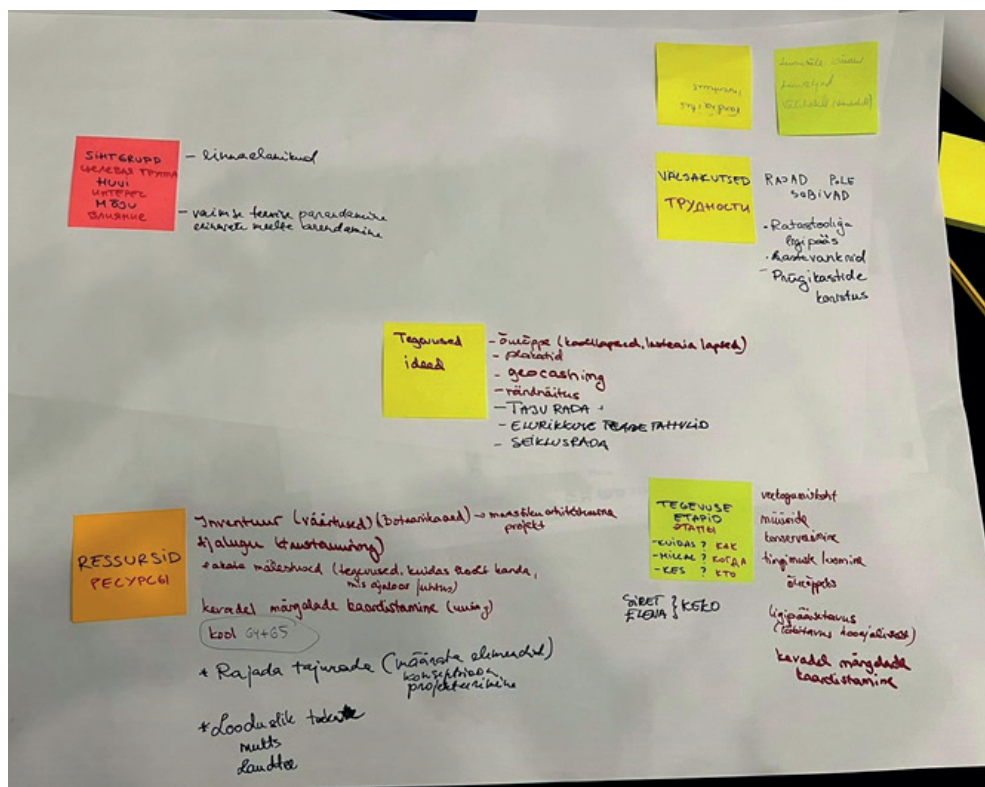 rändnäitus
SIHTGRUPP
ЦЕЛЕВАЯ ГРУППА
HUVI
ИНТЕРЕС
MÕJU
ВЛИЯНИЕ
- linnaelanikud
- vaimse tervise parandamine
erinevate meelte arendamine
VÄLJAKUTSED
ТРУДНОСТИ
RAJAD POLE
SOBIVAD
- Ratastooliga
ligipääs
- Lastevankrid
- Prügikastide
koristus
Tegevused
ideed
- õueõppe (koollapsed, lasteaia lapsed)
- plakatid
- geocashing
- rändnäitus
- TAJU RADA
- ELURIKKUSE TEABETAHVLID
- SEIKLUSRADA
RESSURSID
РЕСУРСЫ
Inventuur (väärtused) (botaanikaaed) → maastiku arhitektuurne
projekt
Ajalugu
mälestused (tegevused, kuidas
kevadel märgalade kaardistamine
kool G4+G5
* Rajada tajurada (määrata elemendid)
kontseptsioon
projekteerimine
* Looduslik
mutts
Laudtee
TEGEVUSE
ETAPID
ЭТАПЫ
- KUIDAS? КАК
- MILLAL? КОГДА
- KES? КТО
SIRET
ELENA } KEKO
müüride
konserveerimine
tingimuste loomine
õueõppeks
ligipääsetavus
kevadel märgalade
kaardistamine